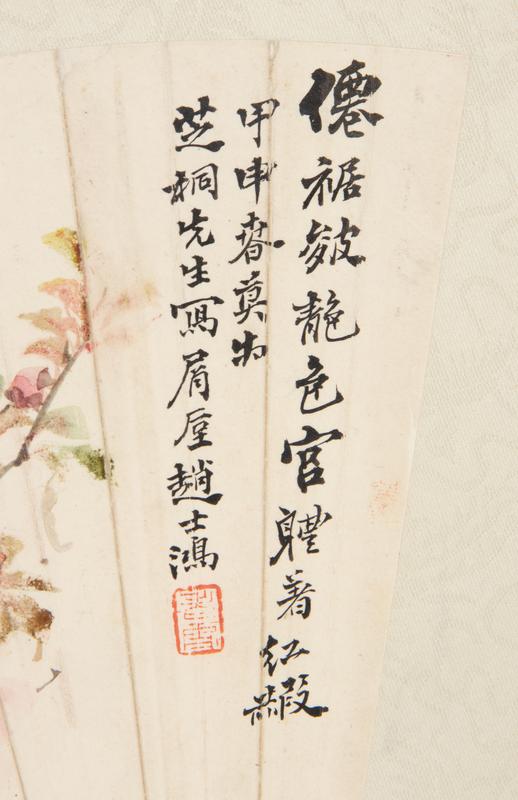 僊裾皴靘色官軆著紅赮
甲申春莫為
芝桐先生寫眉厓趙士鴻